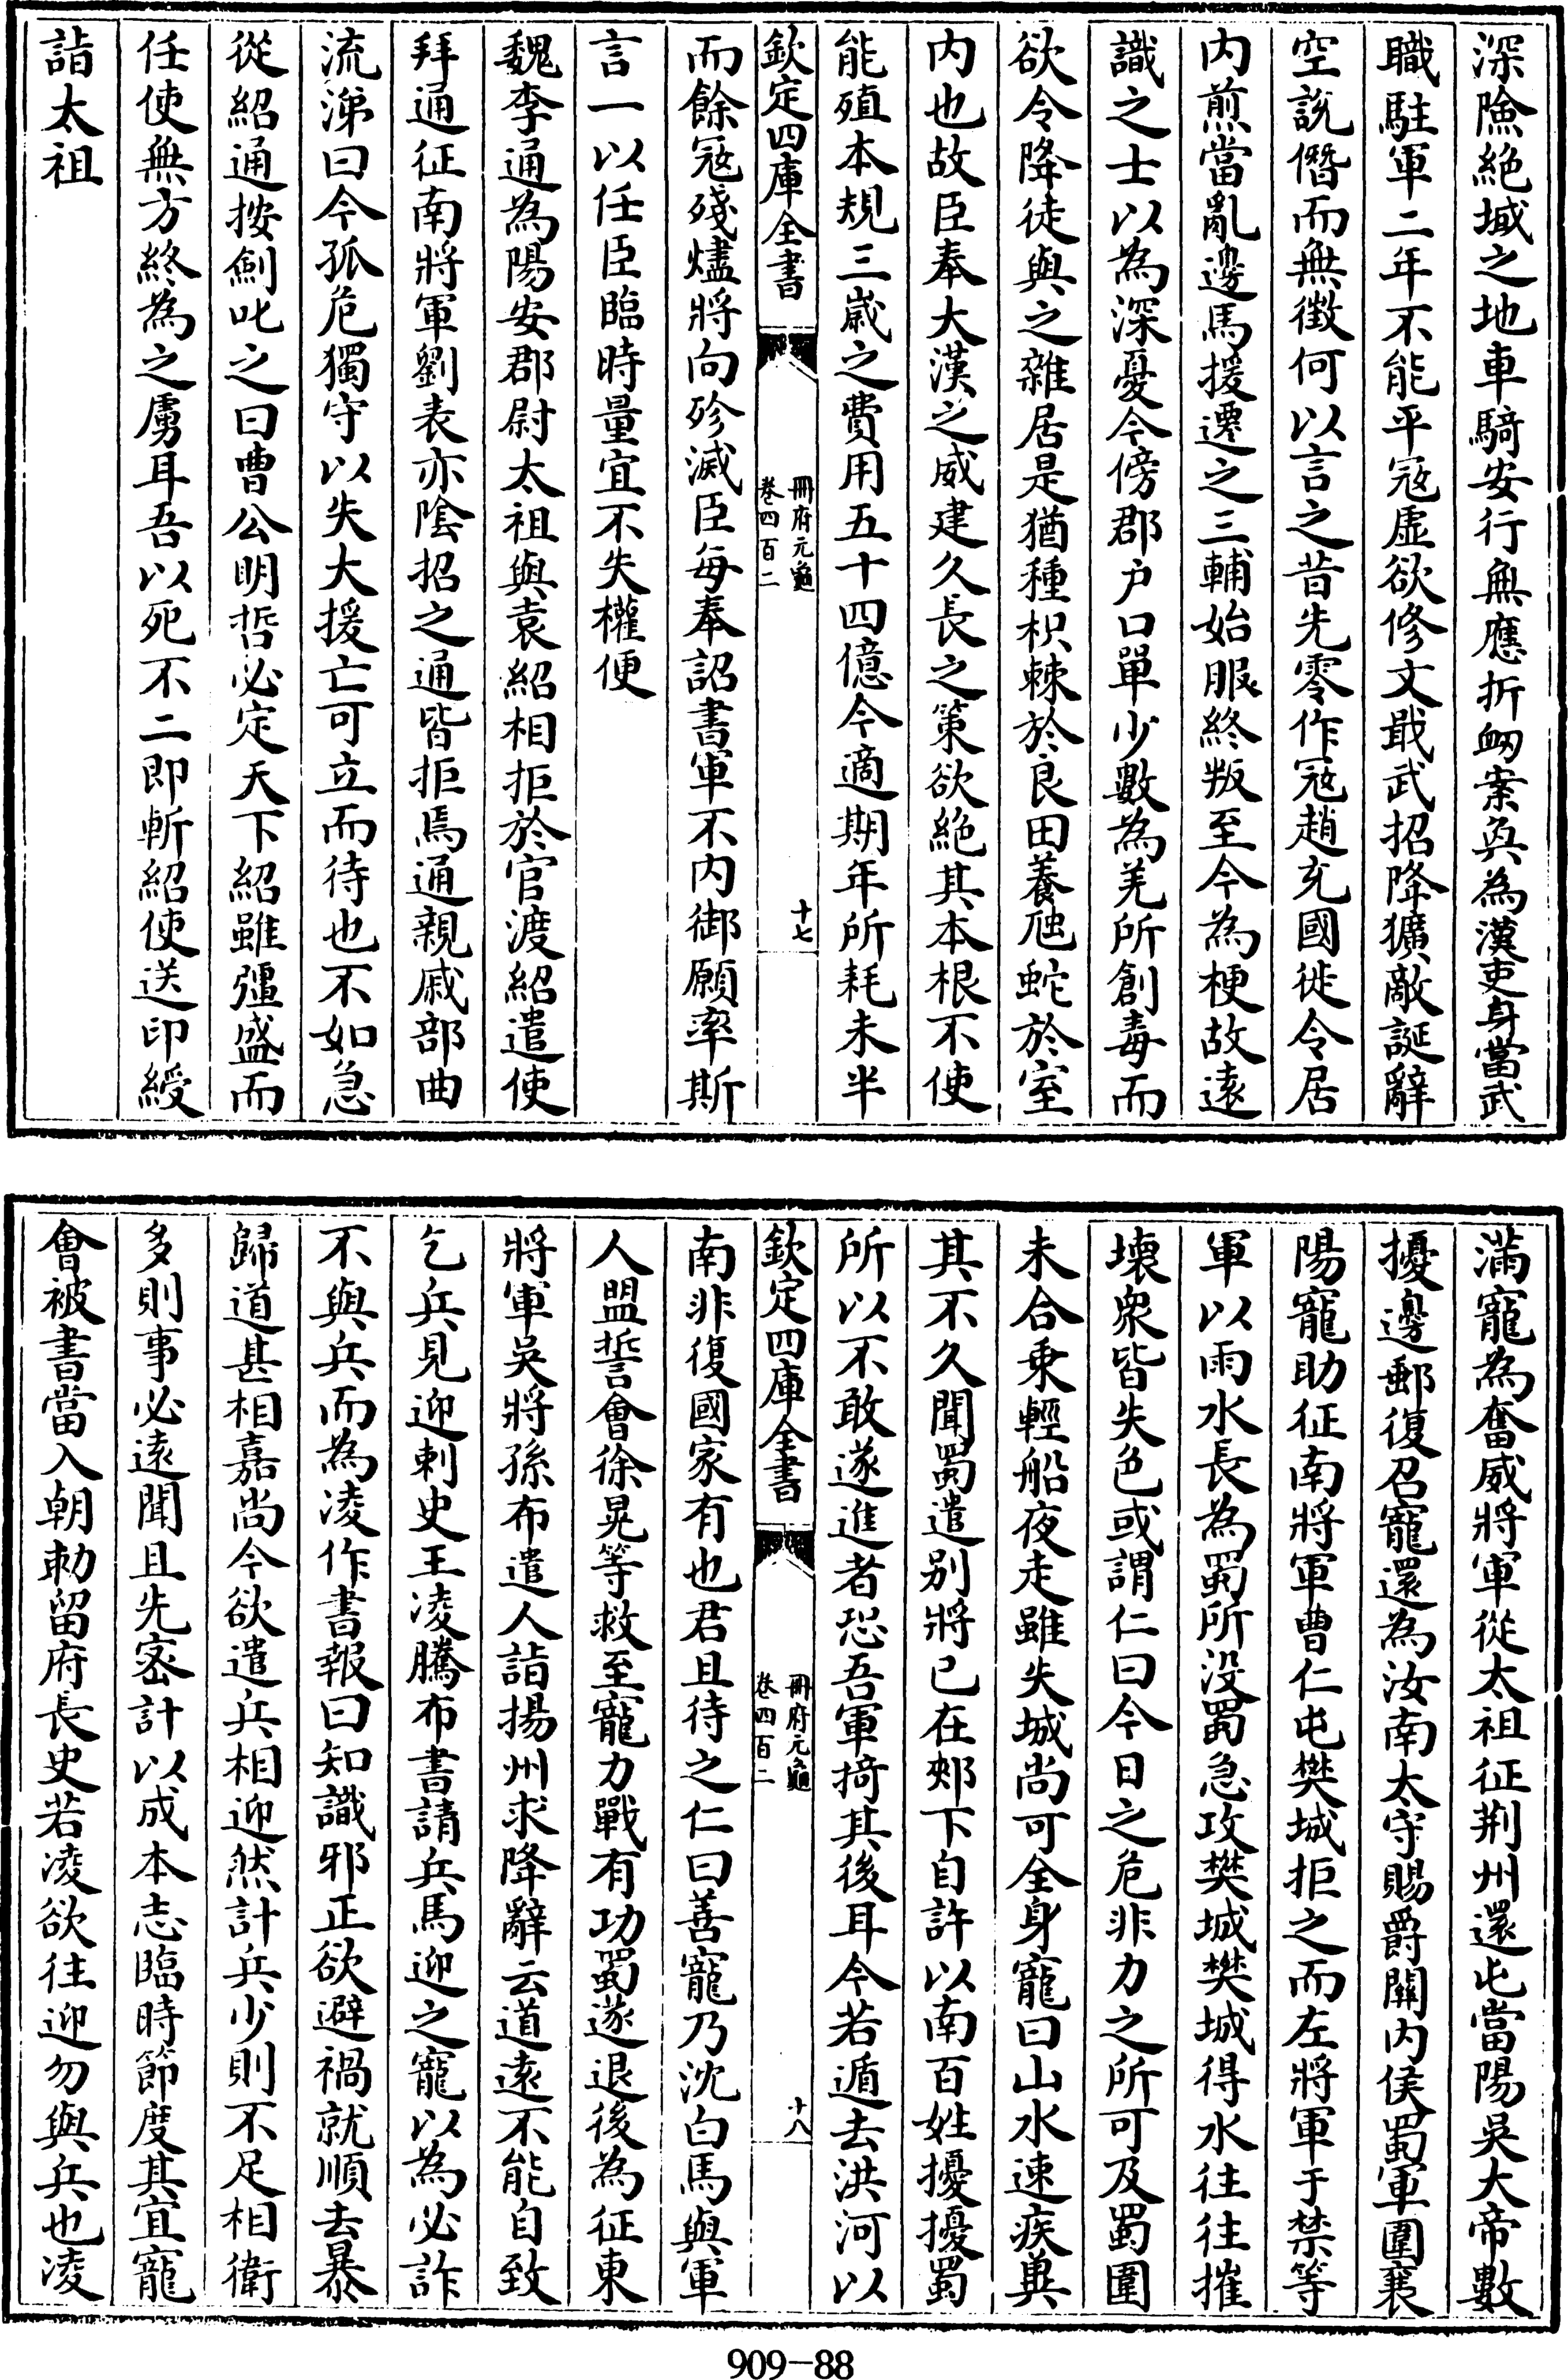 深險絶域之地車騎安行無應折衂案奐為漢吏身當武
職駐軍二年不能平冦虚欲修文戢武招降獷敵誕辭
空説僭而無徴何以言之昔先零作冦趙充國徙令居
内煎當亂邊馬援遷之三輔始服終叛至今為梗故逺
識之士以為深憂今傍郡户口單少數為羌所創毒而
欲令降徒與之雜居是猶種枳棘於良田養虺蛇於室
内也故臣奉大漢之威建久長之策欲絶其本根不使
能殖本規三嵗之費用五十四億今適期年所耗未半
欽定四庫全書
冊府元龜
卷四百二
十七
而餘冦殘燼將向殄滅臣每奉詔書軍不内御願率斯
言一以任臣臨時量宜不失權便
魏李通為陽安郡尉太祖與袁紹相拒於官渡紹遣使
拜通征南將軍劉表亦隂招之通皆拒焉通親戚部曲
流涕曰今孤危獨守以失大援亡可立而待也不如急
從紹通按劍叱之曰曹公明哲必定天下紹雖彊盛而
任使無方終為之虜耳吾以死不二即斬紹使送印綬
詣太祖
滿寵為奮威將軍從太祖征荆州還屯當陽吳大帝數
擾邊郵復召寵還為汝南太守賜爵關内侯蜀軍圍襄
陽寵助征南將軍曹仁屯樊城拒之而左將軍于禁等
軍以雨水長為蜀所没蜀急攻樊城樊城得水往往摧
壞衆皆失色或謂仁曰今日之危非力之所可及蜀圍
未合乗輕船夜走雖失城尚可全身寵曰山水速疾兾
其不久聞蜀遣别將已在郟下自許以南百姓擾擾蜀
所以不敢遂進者恐吾軍掎其後耳今若遁去洪河以
欽定四庫全書
冊府元龜
卷四百二
十八
南非復國家有也君且待之仁曰善寵乃沈白馬與軍
人盟誓會徐晃等救至寵力戰有功蜀遂退後為征東
將軍吳將孫布遣人詣揚州求降辭云道逺不能自致
乞兵見迎刺史王凌騰布書請兵馬迎之寵以為必詐
不與兵而為凌作書報曰知識邪正欲避禍就順去暴
歸道甚相嘉尚今欲遣兵相迎然計兵少則不足相衛
多則事必逺聞且先宻計以成本志臨時節度其宜寵
會被書當入朝勅留府長史若凌欲往迎勿與兵也凌
909-88